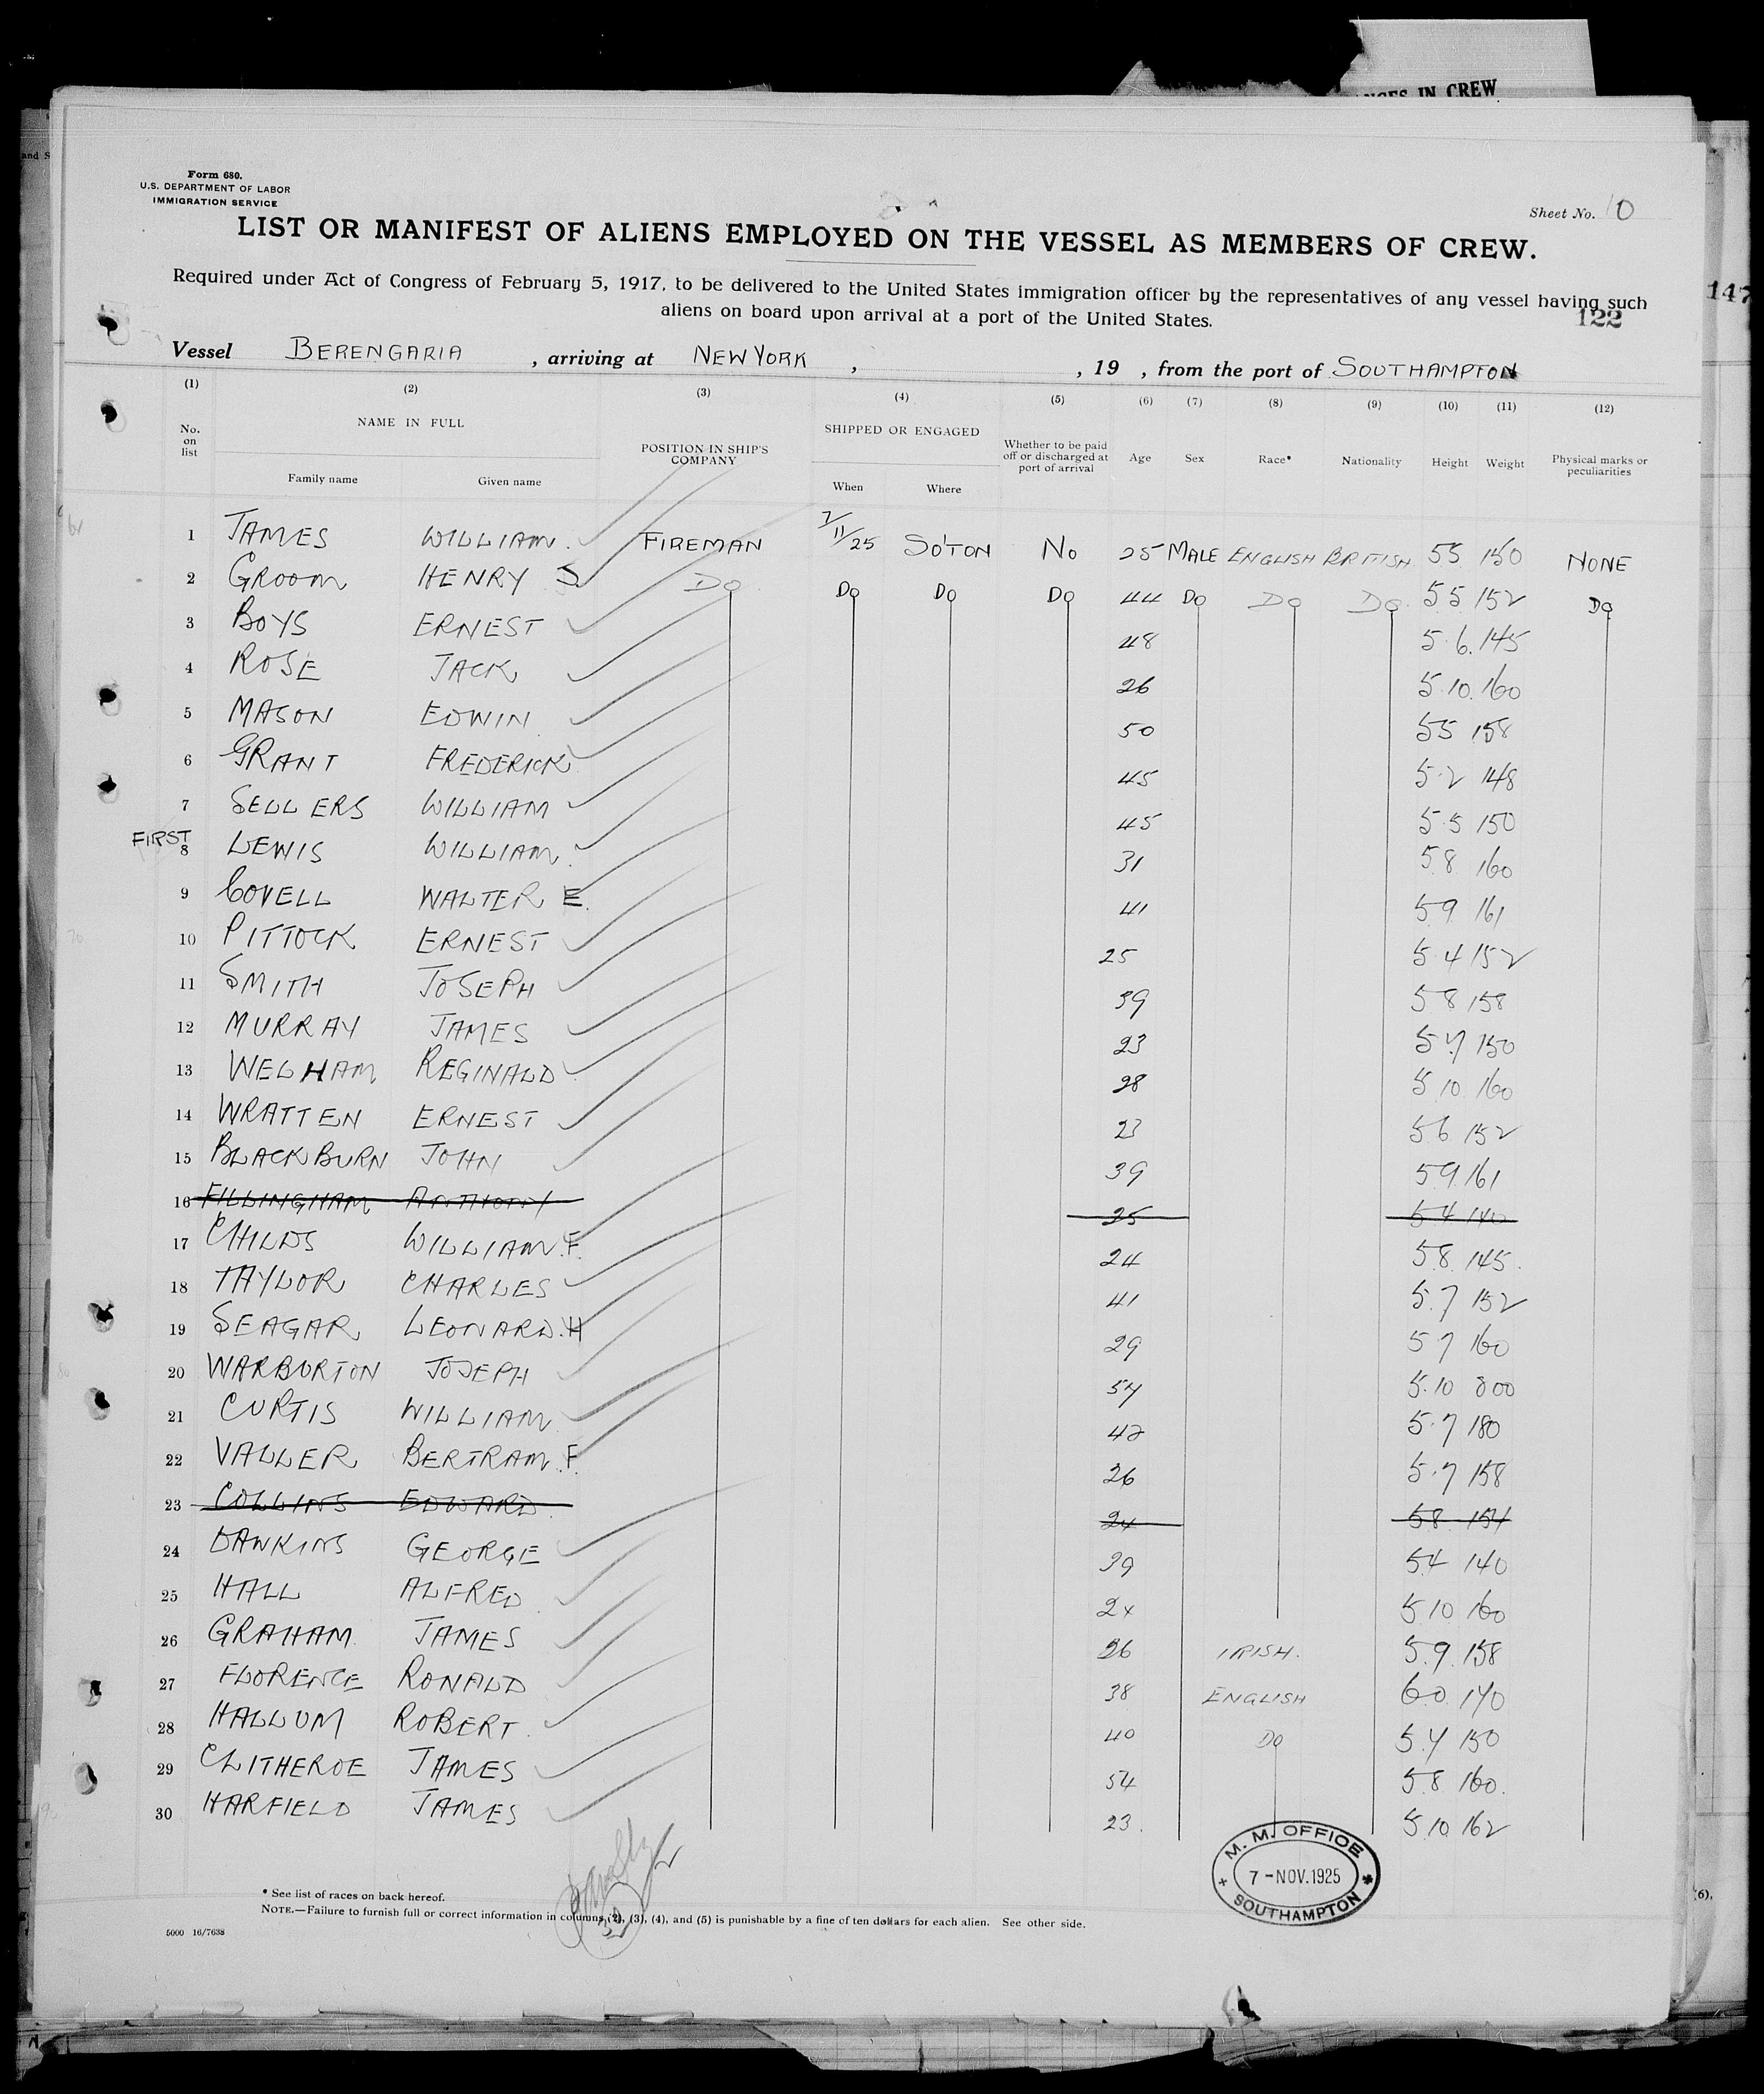 ANGES IN CREW
and S
Form 680.
U.S. DEPARTMENT OF LABOR
IMMIGRATION SERVICE
Sheet No. 10
LIST OR MANIFEST OF ALIENS EMPLOYED ON THE VESSEL AS MEMBERS OF CREW.
Required under Act of Congress of February 5, 1917, to be delivered to the United States immigration officer by the representatives of any vessel having such
aliens on board upon arrival at a port of the United States.
147
122
Vessel BERENGARIA , arriving at NEW YORK , , 19 , from the port of SOUTHAMPTON
(1) (2) (3) (4) (5) (6) (7) (8) (9) (10) (11) (12)
No. on list NAME IN FULL Family name Given name POSITION IN SHIP'S COMPANY SHIPPED OR ENGAGED When Where Whether to be paid off or discharged at port of arrival Age Sex Race* Nationality Height Weight Physical marks or peculiarities
1 JAMES WILLIAM. FIREMAN 7/11/25 SO'TON No 25 MALE ENGLISH BRITISH 55 150 NONE
2 GROOM HENRY S Do Do Do Do 44 Do Do Do 55 152 Do
3 BOYS ERNEST 48 5.6. 145
4 ROSE JACK 26 5.10. 160
5 MASON EDWIN 50 55 158
6 GRANT FREDERICK 45 5.2 148
7 SELLERS WILLIAM 45 5.5 150
FIRST
8 LEWIS WILLIAM 31 5.8 160
9 COVELL WALTER E. 41 59 161
10 PITTOCK ERNEST 25 5.4 152
11 SMITH JOSEPH 39 58 158
12 MURRAY JAMES 23 5.7 150
13 WELHAM REGINALD 28 5.10 160
14 WRATTEN ERNEST 23 56 152
15 BLACKBURN JOHN 39 59. 161
16 FILLINGHAM ANTHONY 25 54 140
17 CHILDS WILLIAM.F. 24 58. 145.
18 TAYLOR CHARLES 41 5.7 152
19 SEAGAR LEONARD.H 29 57 160
20 WARBURTON JOSEPH 54 5.10
21 CURTIS WILLIAM 42 5.7 180
22 VALLER BERTRAM.F. 26 5.7 158
23 COLLINS EDWARD. 24 58 154
24 DAWKINS GEORGE 39 54 140
25 HALL ALFRED 24 510 160
26 GRAHAM JAMES 26 IRISH. 5.9. 158
27 FLORENCE RONALD 38 ENGLISH 6.0. 170
28 HALLUM ROBERT 40 Do 5.7 150
29 CLITHEROE JAMES 54 58 160.
30 HARFIELD JAMES 23. 5.10 162
M. M. OFFICE
7 - NOV. 1925
SOUTHAMPTON
* See list of races on back hereof.
NOTE.—Failure to furnish full or correct information in columns (2), (3), (4), and (5) is punishable by a fine of ten dollars for each alien. See other side.
5000 16/7638
(6),